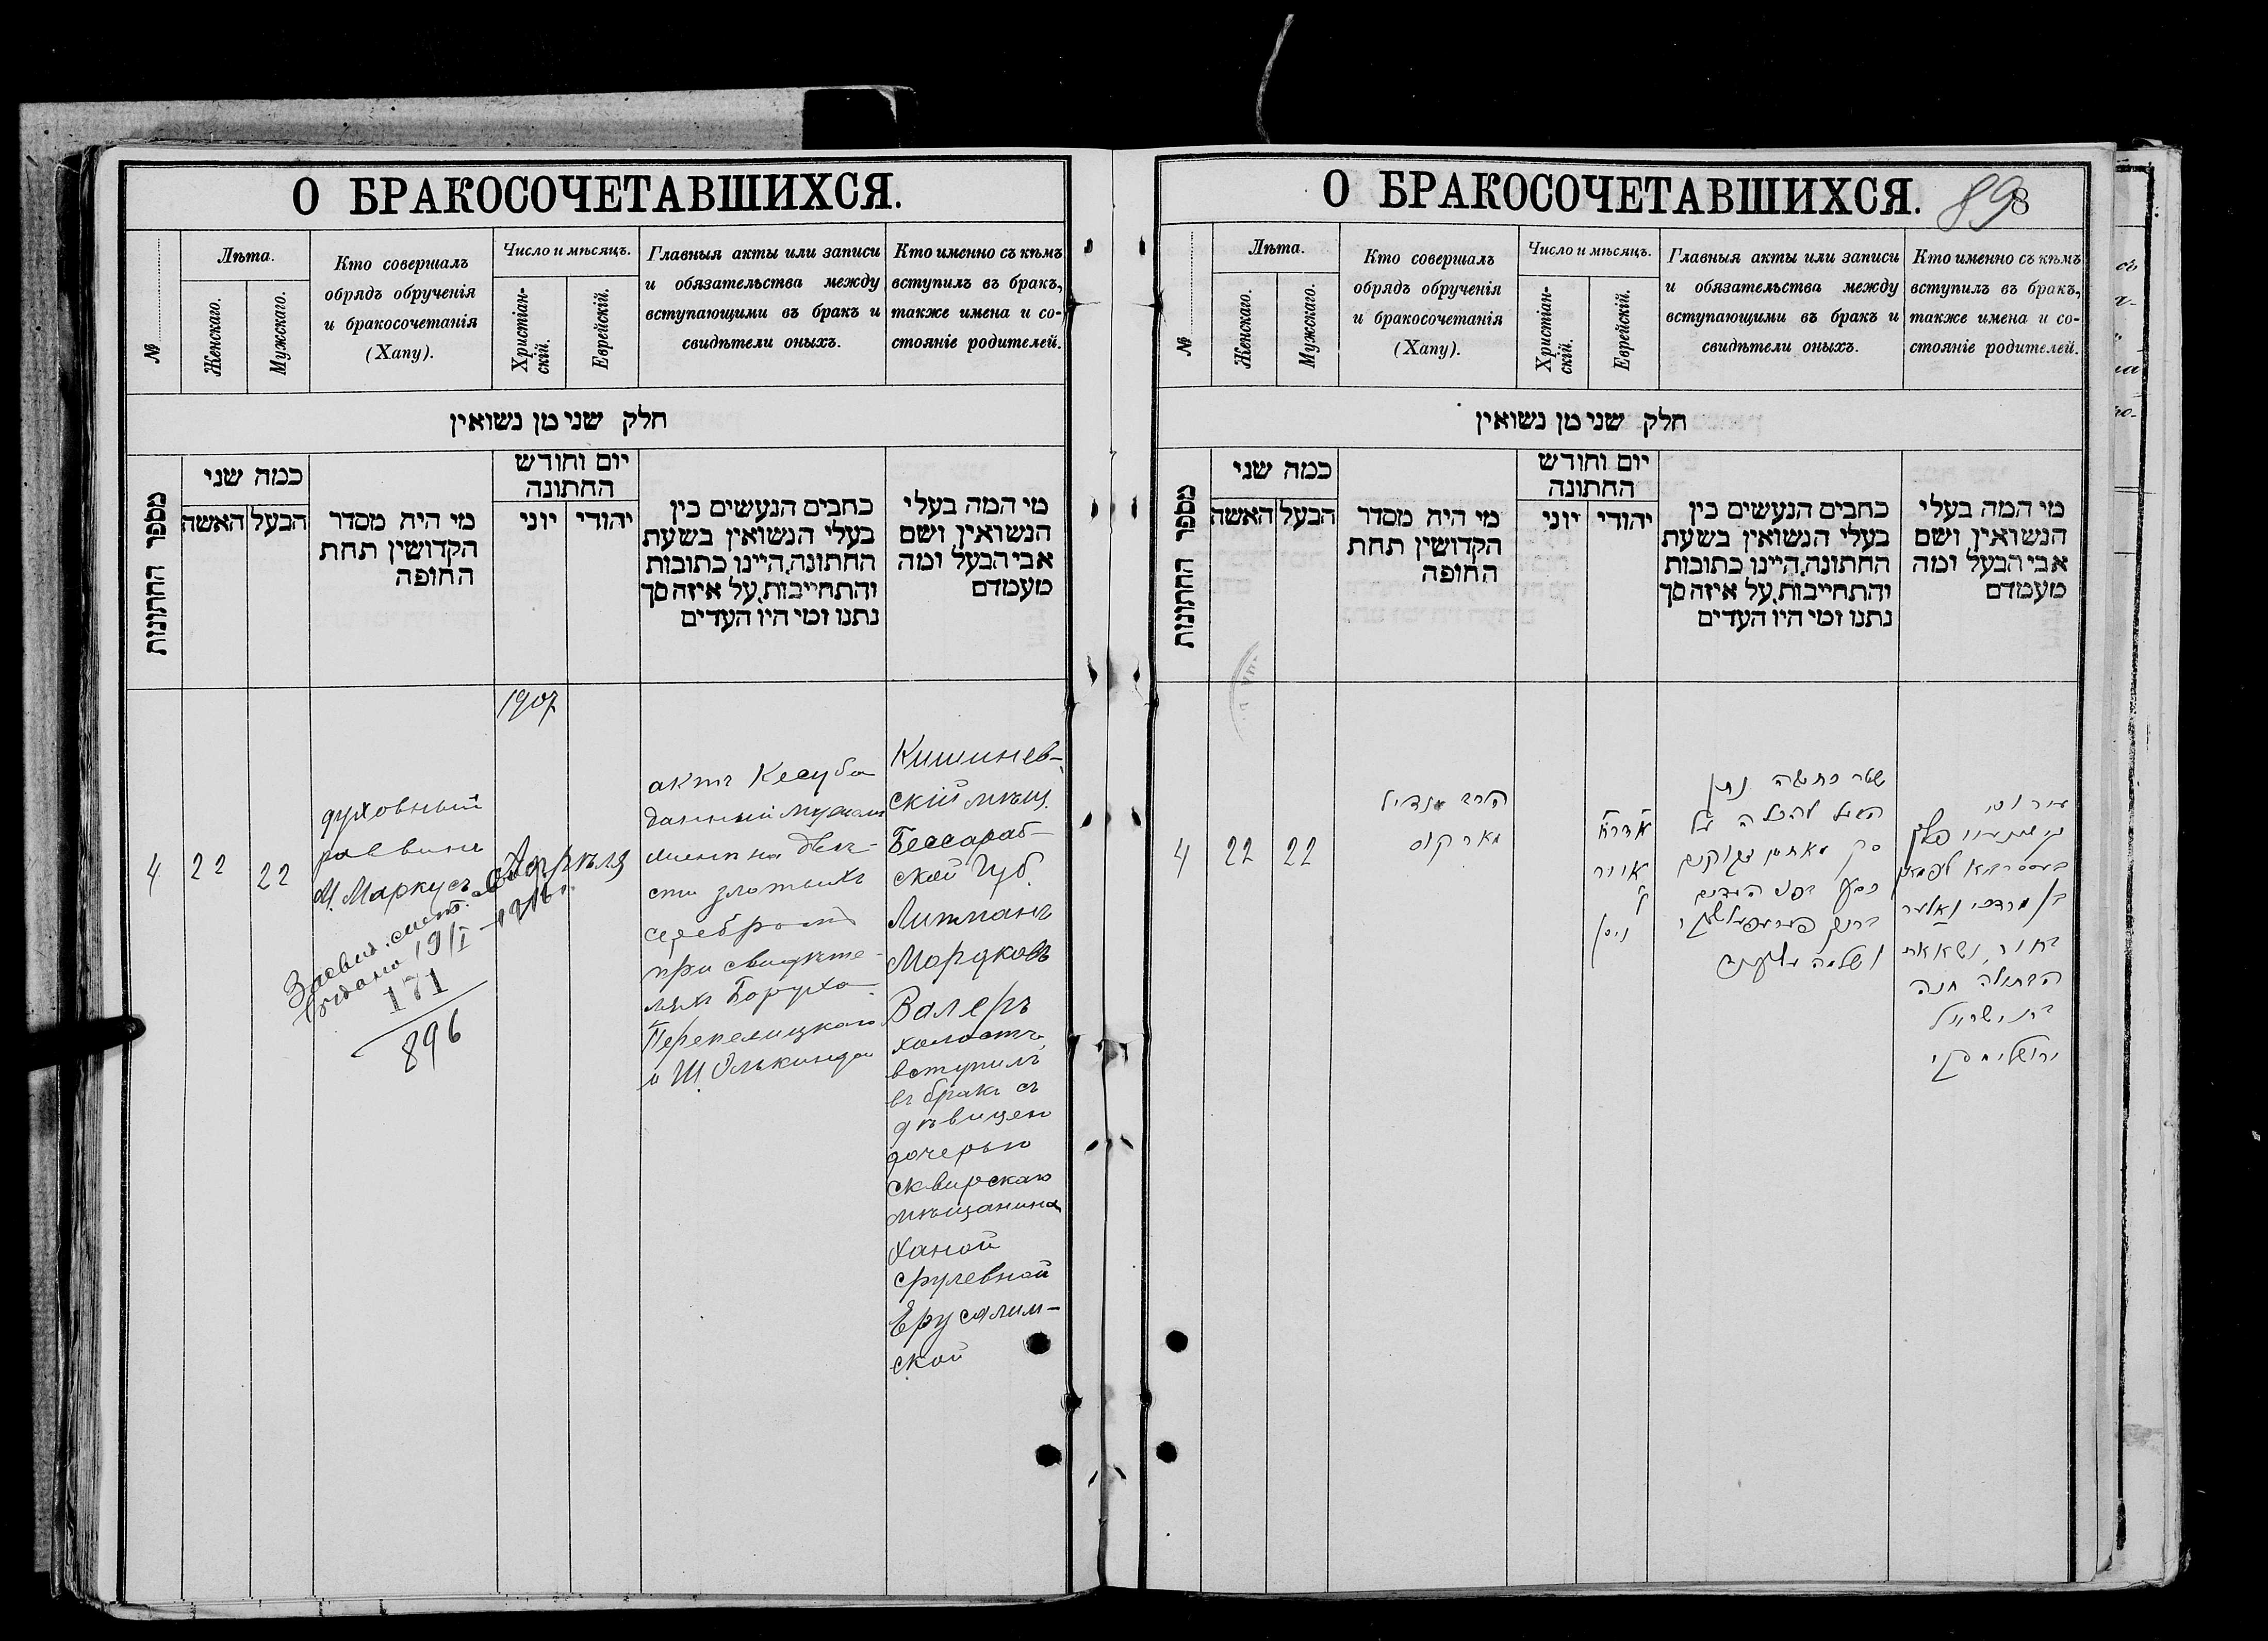 О БРАКОСОЧЕТАВШИХСЯ.
№
Лѣта.
Женскаго.
Мужскаго.
Кто совершалъ
обрядъ обрученія
и бракосочетанія
(Хапу).
Число и мѣсяцъ.
Христіан-
скій.
Еврейскій.
Главныя акты или записи
и обязательства между
вступающими въ бракъ и
свидѣтели оныхъ.
Кто именно съ кѣмъ
вступилъ въ бракъ,
также имена и со-
стояніе родителей.
חלק שני מן נשואין
מספר החתונות
כמה שני
האשה
הבעל
מי היה מסדר
הקדושין תחת
החופה
יום וחודש
החתונה
יוני
יהודי
כתבים הנעשים בין
בעלי הנשואין בשעת
החתונה, היינו כתובות
והתחייבות, על איזה סך
נתנו ומי היו העדים
מי המה בעלי
הנשואין, ושם
אבי הבעל ומה
מעמדם
4
22
22
духовный
раввинъ
М. Маркусъ
1907
Апрѣля
актъ Кесуба
данный мужемъ
женѣ на двѣ-
сти злотыхъ
серебромъ
при свидѣте-
ляхъ Борухѣ
Перепелицкаго
и Ш. Олькинда
Кишинев-
скій мѣщ.
Бессараб-
ской Губ.
Литманъ
Мордковъ
Валеръ
холостъ,
вступилъ
въ бракъ съ
дѣвицею
дочерью
сквирскаго
мѣщанина
Ханой
Срулевной
Ерусалим-
ской
выдано 19/I - 1916 г.
171
896
О БРАКОСОЧЕТАВШИХСЯ.
89
8
№
Лѣта.
Женскаго.
Мужскаго.
Кто совершалъ
обрядъ обрученія
и бракосочетанія
(Хапу).
Число и мѣсяцъ.
Христіан-
скій.
Еврейскій.
Главныя акты или записи
и обязательства между
вступающими въ бракъ и
свидѣтели оныхъ.
Кто именно съ кѣмъ
вступилъ въ бракъ,
также имена и со-
стояніе родителей.
חלק שני מן נשואין
מספר החתונות
כמה שני
האשה
הבעל
מי היה מסדר
הקדושין תחת
החופה
יום וחודש
החתונה
יוני
יהודי
כתבים הנעשים בין
בעלי הנשואין בשעת
החתונה, היינו כתובות
והתחייבות, על איזה סך
נתנו ומי היו העדים
מי המה בעלי
הנשואין, ושם
אבי הבעל ומה
מעמדם
4
22
22
הרב
מארקוס
ניסן
שטר כתובה נתן
הבעל להכלה על
סך מאתים זהובים
כסף בפני העדים
ברוך
ושלמה
בן מרדכי וואלער
בחור, נשא את
הבתולה חנה
בת ישראל
ירושלימסקי